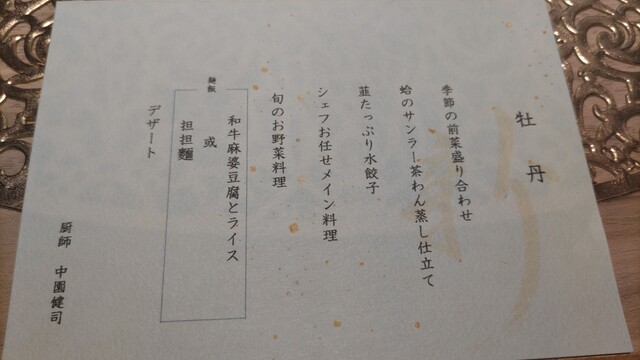 牡丹
季節の前菜盛り合わせ
蛤のサンラー茶わん蒸し仕立て
韮たっぷり水餃子
シェフお任せメイン料理
旬のお野菜料理
麺飯
和牛麻婆豆腐とライス
或
担担麺
デザート
厨師 中園健司